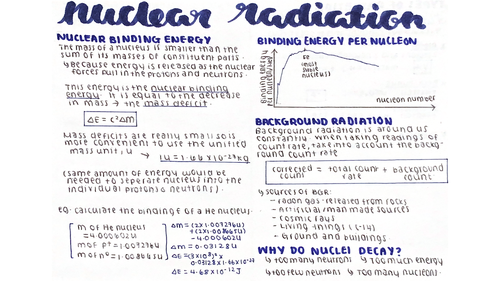 nuclear radiation
NUCLEAR BINDING ENERGY
The mass of a nucleus is smaller than the
sum of its masses of constituent parts.
↳ because energy is released as the nuclear
forces pull in the protons and neutrons.
This energy is the nuclear binding
energy. it is equal to the decrease
in mass → the mass deficit.
ΔE = c²Δm
Mass deficits are really small so is
more convenient to use the unified
mass unit, u → 1u = 1.66 x10⁻²⁷kg
(same amount of energy would be
needed to separate nucleus into the
individual protons & neutrons).
eg. calculate the binding of a He nucleus.
m of He nucleus
= 4.000602u
m of p⁺ = 1.00728u
m of n⁰ = 1.00865u
Δm = (2x1.00728u)
+ (2x1.00865u)
- 4.000602u
Δm = 0.03128u
ΔE = (3x10⁸)² x
ΔE = 4.68 x10⁻¹²J
BINDING ENERGY PER NUCLEON
Binding energy
per nucleon
Fe
(most
stable
nucleus)
nucleon number
BACKGROUND RADIATION
Background radiation is around us
constantly. When taking readings of
count rate, take into account the backg-
round count rate
corrected = total count + background
count rate count
↳ sources of BGR:
- radon gas: released from rocks
- Artificial/man made sources
- cosmic rays
- Living things (C-14)
- Ground and buildings
WHY DO NUCLEI DECAY?
↳ too many neutrons ↳ too much energy
↳ too few neutrons ↳ too many nucleons.